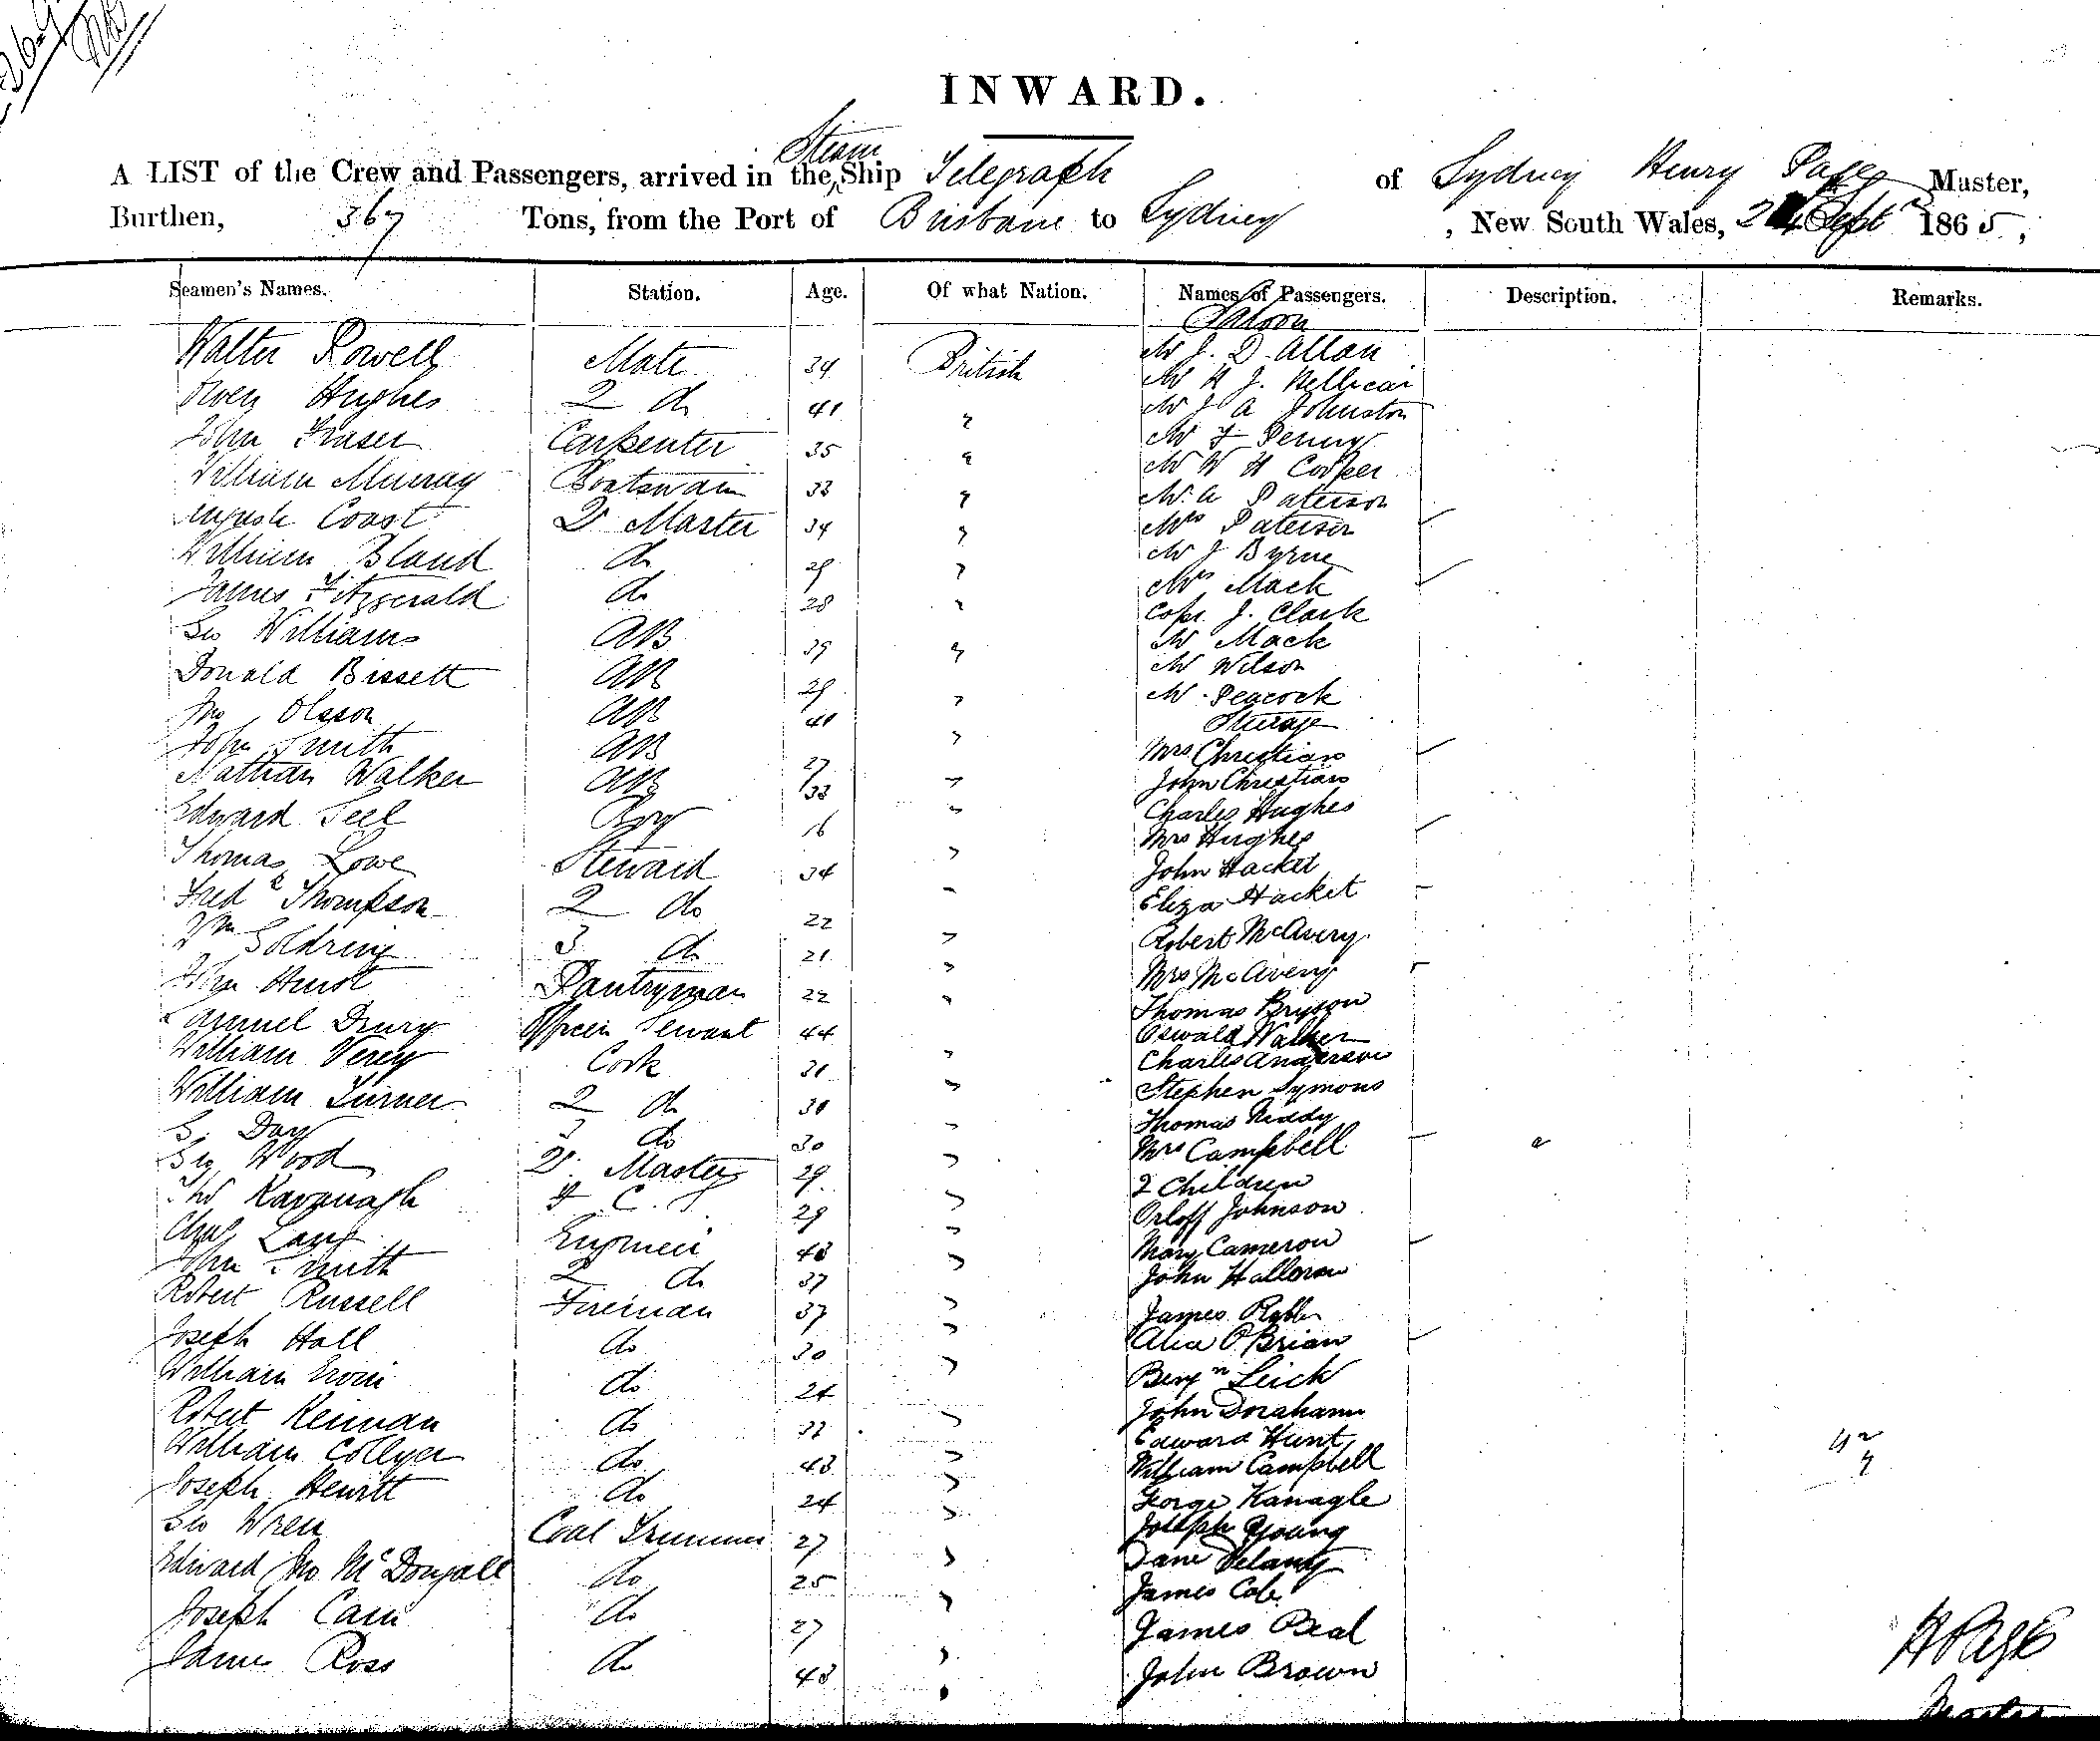 INWARD.
A LIST of the Crew and Passengers, arrived in the Steam Ship Telegraph of Sydney Henry Master,
Burthen, 367 Tons, from the Port of Brisbane to Sydney , New South Wales, Sept 1865,
Seamen's Names. Station. Age. Of what Nation. Names of Passengers. Description. Remarks.
Saloon
Walter Rowell Mate 34 British Mr J. D. Allan
Owen Hughes 2 do 41 " Mr J.
Mr J A Johnston
John Fraser Carpenter 35 " Mr F Penny
William Murray Boatswain 33 " Mr W H Cooper
Mr A Paterson
Coast Qr Master 34 " Mrs Paterson
William Bland do 29 " Mr J Byrne
James Fitzgerald do 28 " Mrs Mack
Capt J. Clark
Geo Williams AB 39 " Mr Mack
Donald Bissett AB 29 " Mr Wilson
Mr Peacock
Jno Olsson AB 41 " Steerage
John Smith AB 27 " Mrs Christian
Nathan Walker AB 33 " John Christian
Edward Teel Boy 16 " Charles Hughes
Mrs Hughes
Thomas Lowe Steward 34 " John Hacket
Fredk Thompson 2 do 22 " Eliza Hacket
Wm Goldring 3 do 21 " Robert McAvery
John Hurst Pantryman 22 " Mrs McAvery
Samuel Drury Officers Servant 44 " Thomas Bryson
Oswald Walker
William Verey Cook 31 " Charles Anderson
William Turner 2 do 30 " Stephen Symons
Thomas Niddy
G. Day 3 do 30 " Mrs Campbell
Geo Wood Qr. Master 29 " 2 Children
Thos Kavanagh F. C. S 29 " Orloff Johnson
Chas Lang Engineer 43 " Mary Cameron
John Smith 2 do 37 " John Halloran
Robert Russell Fireman 37 " James
Joseph Hall do 30 " Alice O'Brian
William Ervin do 24 " Benjn Leick
John
Robert Keinnan do 32 " Edward Hunt
William Collyer do 43 " William Campbell
Joseph Hewitt do 24 " George Kanagle
Geo Wren Coal Trimmer 27 " Joseph Young
Jane Delany
Edward Jno McDougall do 25 " James Cole
Joseph Cain do 27 " James Beal
James Ross do 43 " John Brown
42
7
H Page
Master